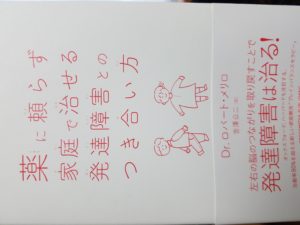 薬に頼らず
家庭で治せる
発達障害との
つき合い方
Dr.ロバート・メリロ
吉澤公二 訳
左右の脳のつながりを取り戻すことで
発達障害は治る!